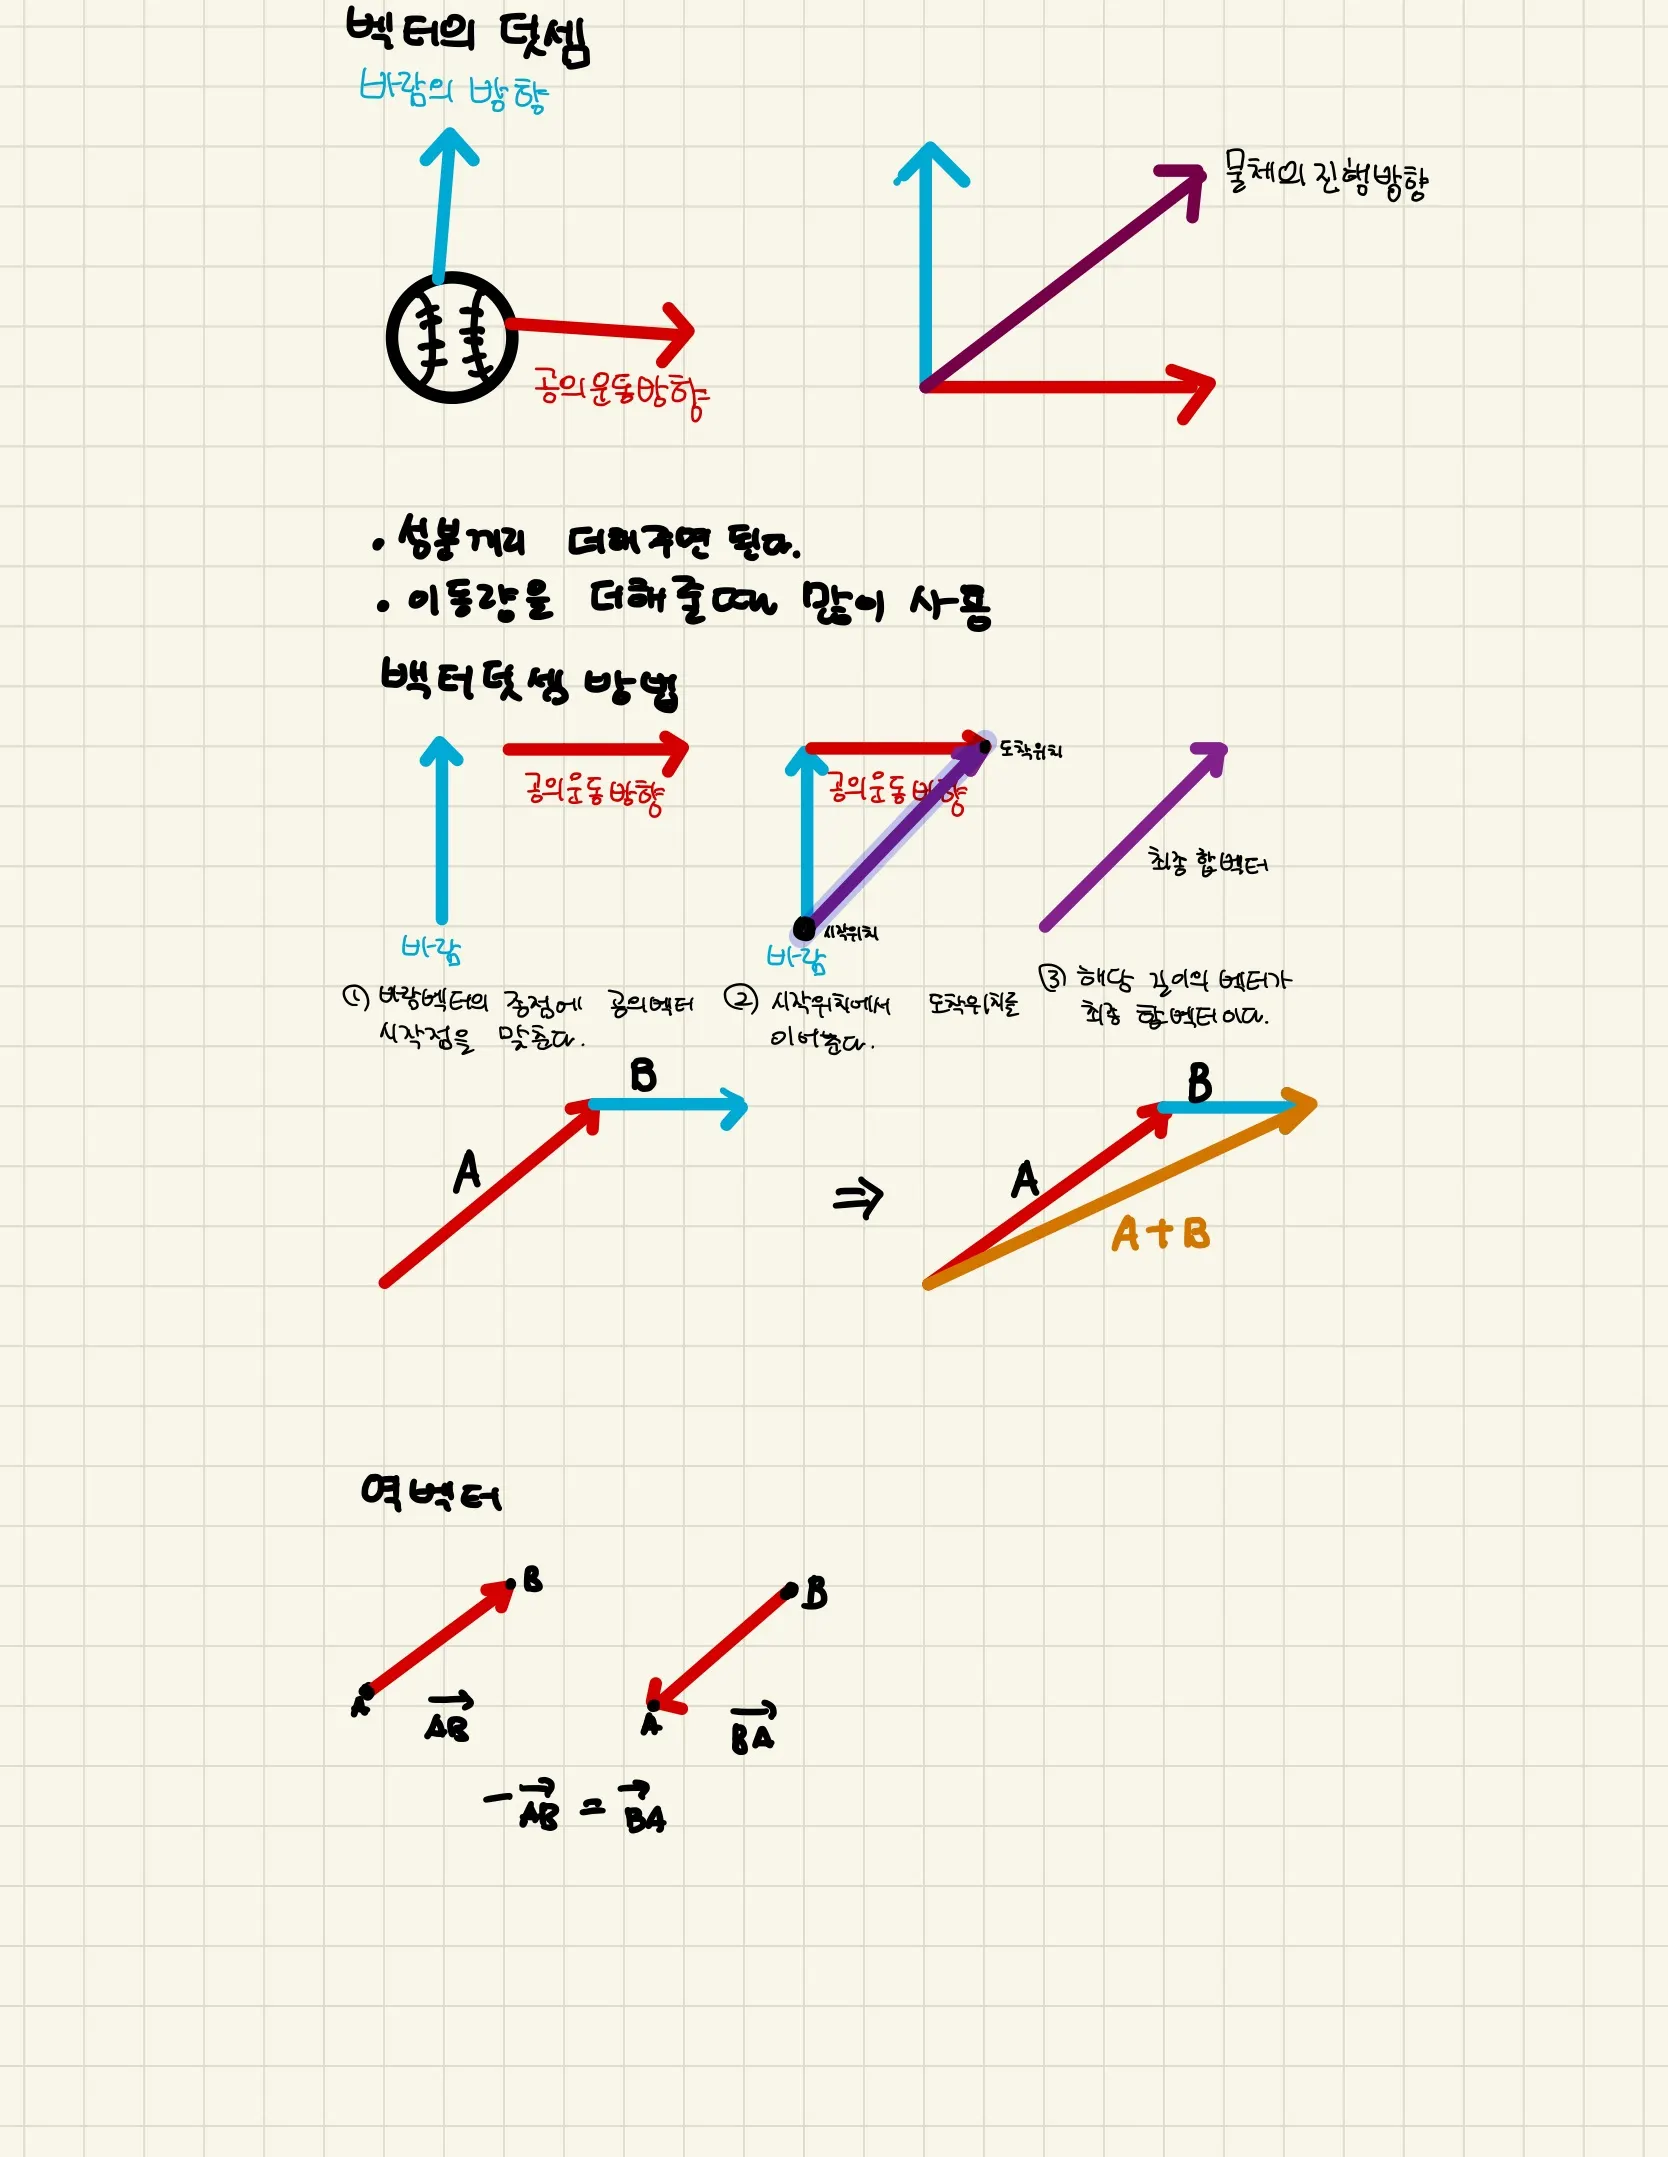 벡터의 덧셈
바람의 방향
물체의 진행방향
공의운동방향
· 성분끼리 더해주면 된다.
· 이동량을 더해줄때 많이 사용
벡터덧셈 방법
도착위치
공의운동방향
공의운동방향
최종 합벡터
시작위치
바람
바람
① 바람벡터의 종점에 공의벡터
시작점을 맞춘다.
② 시작위치에서 도착위치를
이어준다.
③ 해당 길이의 벡터가
최종 합벡터이다.
B
A
⇒
B
A
A+B
역벡터
B
A
AB
B
A
BA
-AB = BA